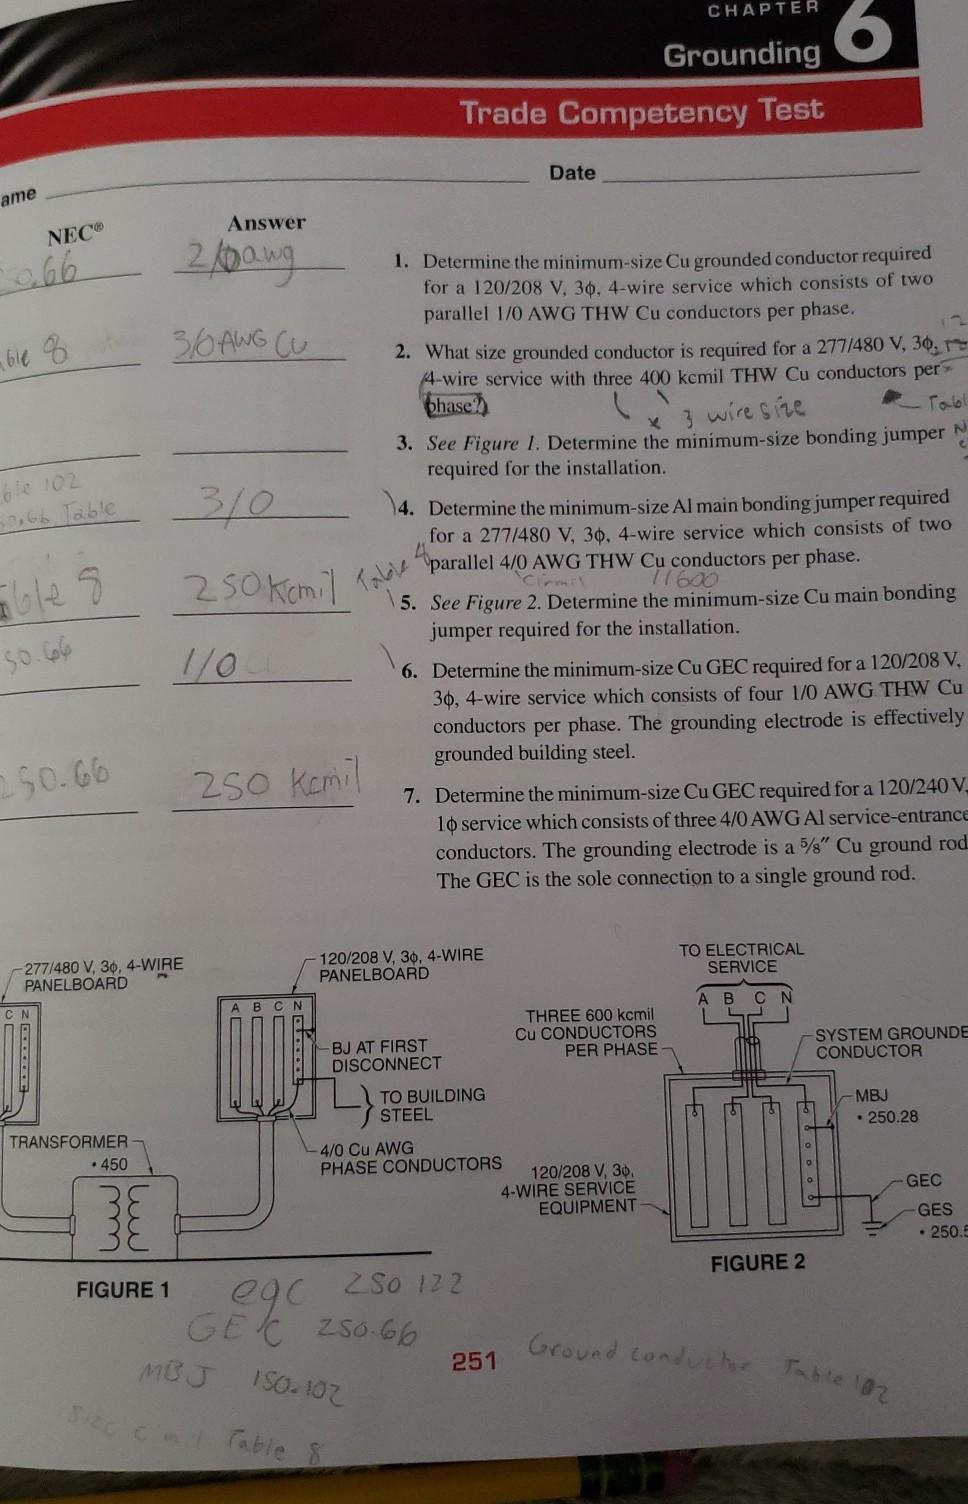 CHAPTER 6
Grounding
Trade Competency Test
ame
Date
NEC®
Answer
50.66
2/0 awg
1. Determine the minimum-size Cu grounded conductor required
for a 120/208 V, 3ϕ, 4-wire service which consists of two
parallel 1/0 AWG THW Cu conductors per phase.
ble 8
3/0 AWG CU
2. What size grounded conductor is required for a 277/480 V, 3ϕ,
4-wire service with three 400 kcmil THW Cu conductors per
phase?
x 3 wire size
Tabl
3. See Figure 1. Determine the minimum-size bonding jumper
required for the installation.
ble 102
50.66 Table
3/0
4. Determine the minimum-size Al main bonding jumper required
for a 277/480 V, 3ϕ, 4-wire service which consists of two
parallel 4/0 AWG THW Cu conductors per phase.
Table 8
250 Kcmil
Table 4
Cirmil
11600
5. See Figure 2. Determine the minimum-size Cu main bonding
jumper required for the installation.
50.66
1/0
6. Determine the minimum-size Cu GEC required for a 120/208 V,
3ϕ, 4-wire service which consists of four 1/0 AWG THW Cu
conductors per phase. The grounding electrode is effectively
grounded building steel.
250.66
250 Kcmil
7. Determine the minimum-size Cu GEC required for a 120/240 V,
1ϕ service which consists of three 4/0 AWG Al service-entrance
conductors. The grounding electrode is a 5/8" Cu ground rod
The GEC is the sole connection to a single ground rod.
277/480 V, 3ϕ, 4-WIRE
PANELBOARD
C N
120/208 V, 3ϕ, 4-WIRE
PANELBOARD
A B C N
BJ AT FIRST
DISCONNECT
TO BUILDING
STEEL
4/0 Cu AWG
PHASE CONDUCTORS
TRANSFORMER
• 450
FIGURE 1
TO ELECTRICAL
SERVICE
A B C N
THREE 600 kcmil
Cu CONDUCTORS
PER PHASE
SYSTEM GROUNDE
CONDUCTOR
MBJ
• 250.28
120/208 V, 3ϕ,
4-WIRE SERVICE
EQUIPMENT
GEC
GES
• 250.5
FIGURE 2
egc 250 122
GEC 250.66
MBJ 150.102
Size c mil Table 8
251
Ground conductor Table 102